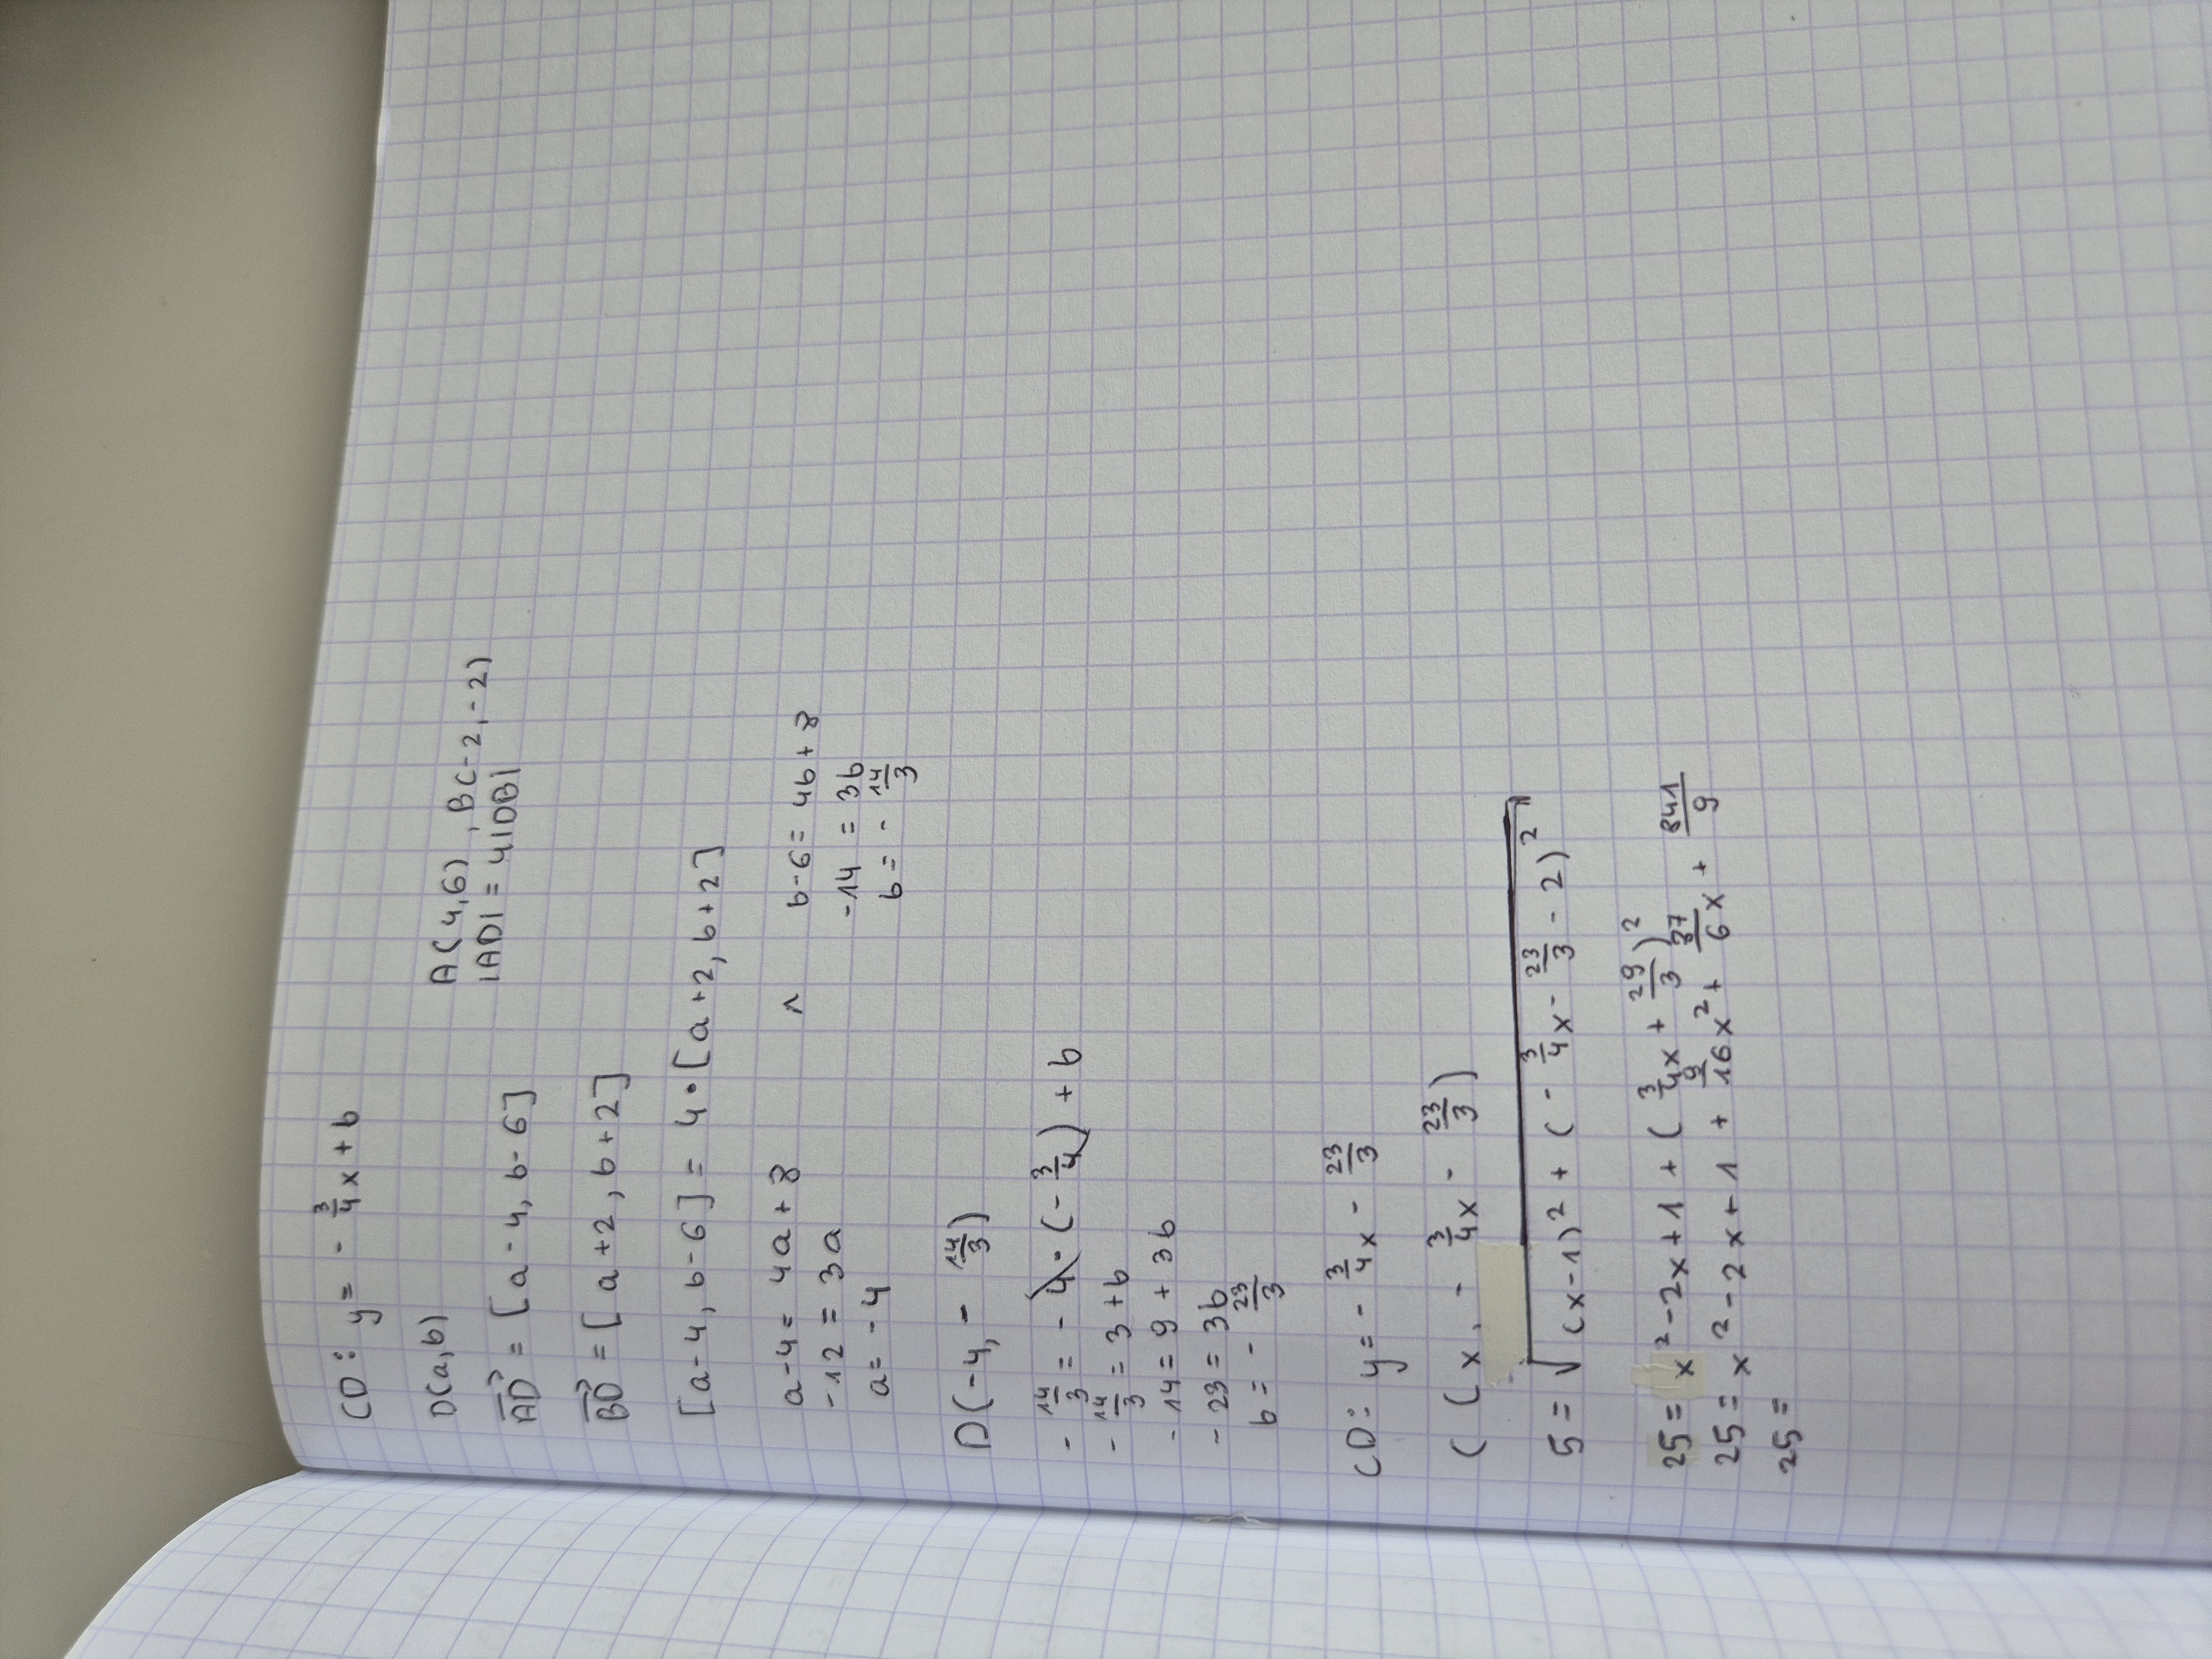 CD: y = - 3/4 x + b
D(a,b)    A(4,6), B(-2,-2)
AD = [a-4, b-6]    |AD| = 4|DB|
BD = [a+2, b+2]
[a-4, b-6] = 4·[a+2, b+2]
a-4 = 4a+8    ∧    b-6 = 4b+8
-12 = 3a    -14 = 3b
a = -4    b = - 14/3
D(-4, - 14/3)
- 14/3 = - 4·(- 3/4) + b
- 14/3 = 3+b
-14 = 9+3b
-23 = 3b
b = - 23/3
CD: y = - 3/4 x - 23/3
C (x, - 3/4 x - 23/3)
5 = √(x-1)² + (- 3/4 x - 23/3 - 2)²
25 = x²-2x+1 + (3/4 x + 29/3)²
25 = x²-2x+1 + 9/16 x² + 87/6 x + 841/9
25 =